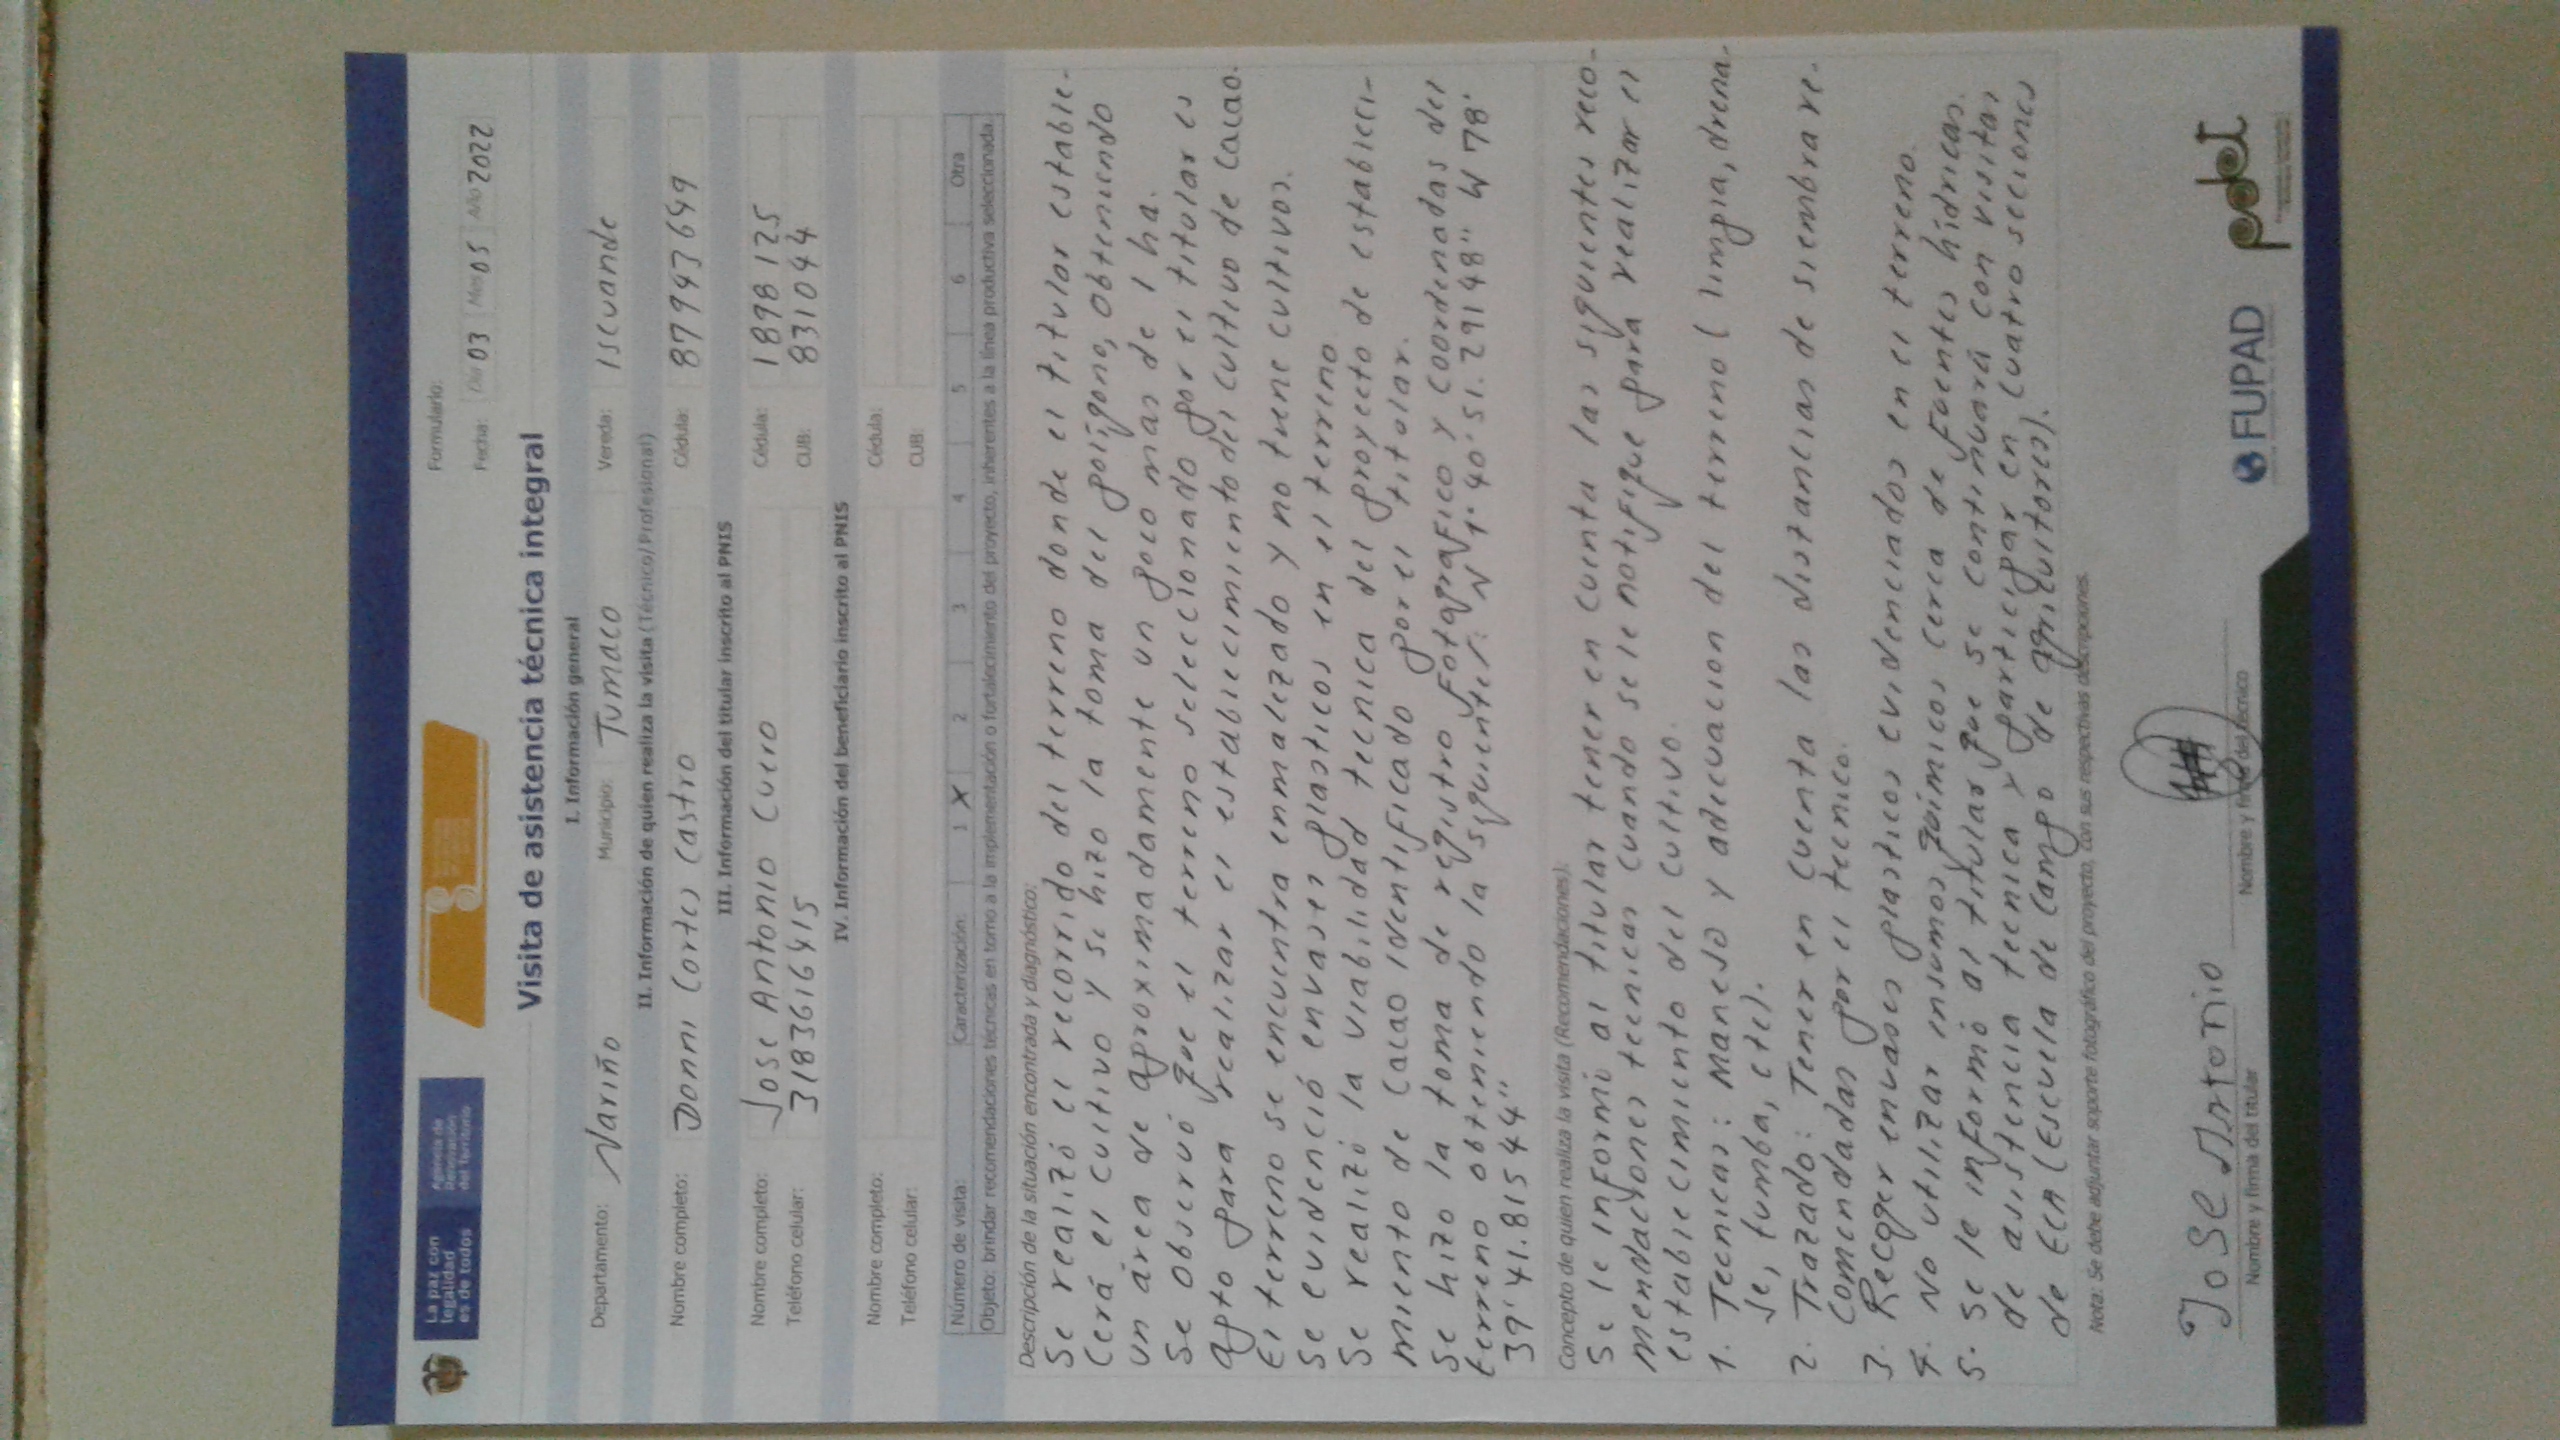 La paz con
legalidad
es de todos
Agencia de
Renovación
del Territorio
Formulario:
Fecha: Día 03 Mes 05 Año 2022
Visita de asistencia técnica integral
I. Información general
Departamento: Nariño Municipio: Tumaco Vereda: Iscuande
II. Información de quien realiza la visita (Técnico/Profesional)
Nombre completo: Donni Cortes Castro Cédula: 87943649
III. Información del titular inscrito al PNIS
Nombre completo: Jose Antonio Cuero Cédula: 1898125
Teléfono celular: 3183616415 CUB: 831044
IV. Información del beneficiario inscrito al PNIS
Nombre completo: Cédula:
Teléfono celular: CUB:
Número de visita: Caracterización: 1 X 2 3 4 5 6 Otra
Objeto: brindar recomendaciones técnicas en torno a la implementación o fortalecimiento del proyecto, inherentes a la línea productiva seleccionada.
Descripción de la situación encontrada y diagnóstico:
Se realizó el recorrido del terreno donde el titular estable-
cerá el cultivo y se hizo la toma del polígono, obteniendo
un área de aproximadamente un poco mas de 1 ha.
Se observó que el terreno seleccionado por el titular es
apto para realizar el establecimiento del cultivo de cacao.
El terreno se encuentra enmalezado y no tiene cultivos.
Se evidenció envases plasticos en el terreno.
Se realizó la viabilidad tecnica del proyecto de estableci-
miento de cacao identificado por el titular.
Se hizo la toma de registro fotografico y coordenadas del
terreno obteniendo la siguiente: N 1° 40' 51.29148" W 78°
39' 41.81544"
Concepto de quien realiza la visita (Recomendaciones):
Se le informó al titular tener en cuenta las siguientes reco-
mendaciones tecnicas cuando se le notifique para realizar el
establecimiento del cultivo.
1. Tecnicas: Manejo y adecuacion del terreno (limpia, drena-
je, tumba, etc).
2. Trazado: Tener en cuenta las distancias de siembra re-
comendadas por el tecnico.
3. Recoger envases plasticos evidenciados en el terreno.
4. No utilizar insumos químicos cerca de fuentes hídricas.
5. Se le informó al titular que se continuará con visitas
de asistencia tecnica y participar en cuatro secciones
de ECA (Escuela de Campo de agricultores).
Nota: Se debe adjuntar soporte fotográfico del proyecto, con sus respectivas descripciones.
Jose Antonio
Nombre y firma del titular Nombre y firma del técnico
FUPAD
pdet